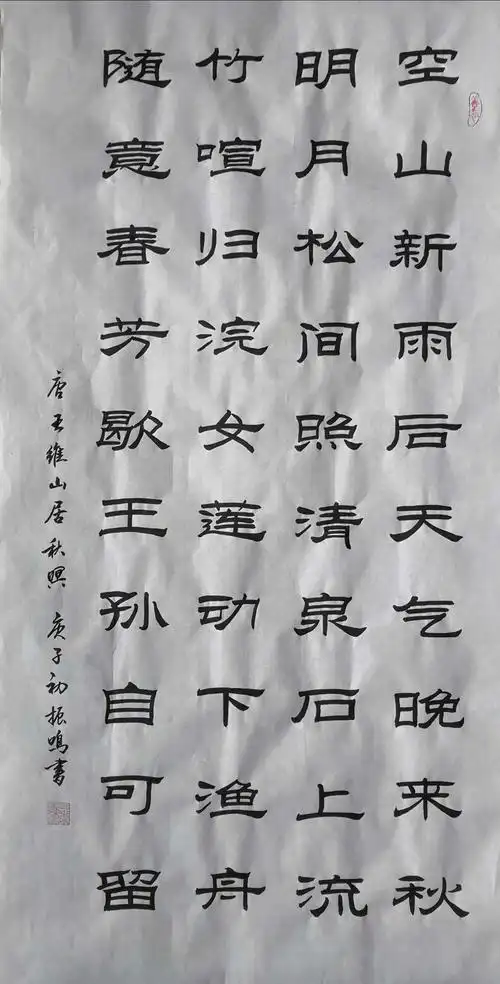 空山新雨后天气晚来秋
明月松间照清泉石上流
竹喧归浣女莲动下渔舟
随意春芳歇王孙自可留
唐王维山居秋暝 庚子初振鸣书